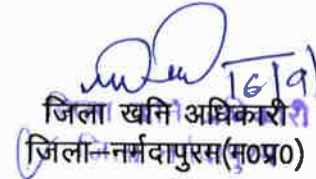 16/9
जिला खनि अधिकारी
जिला–नर्मदापुरम(म0प्र0)